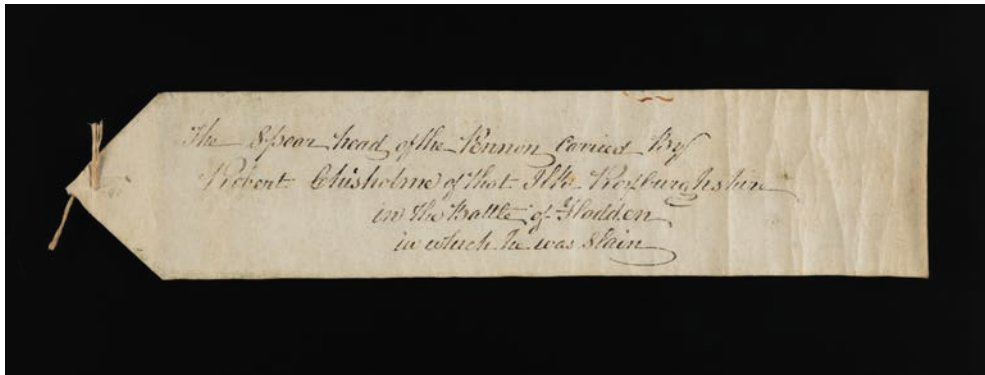 The Spear head of the Pennon carried By
Robert Chisholme of that Ilk Roxburghshire
in the Battle of Flodden
in which he was Slain